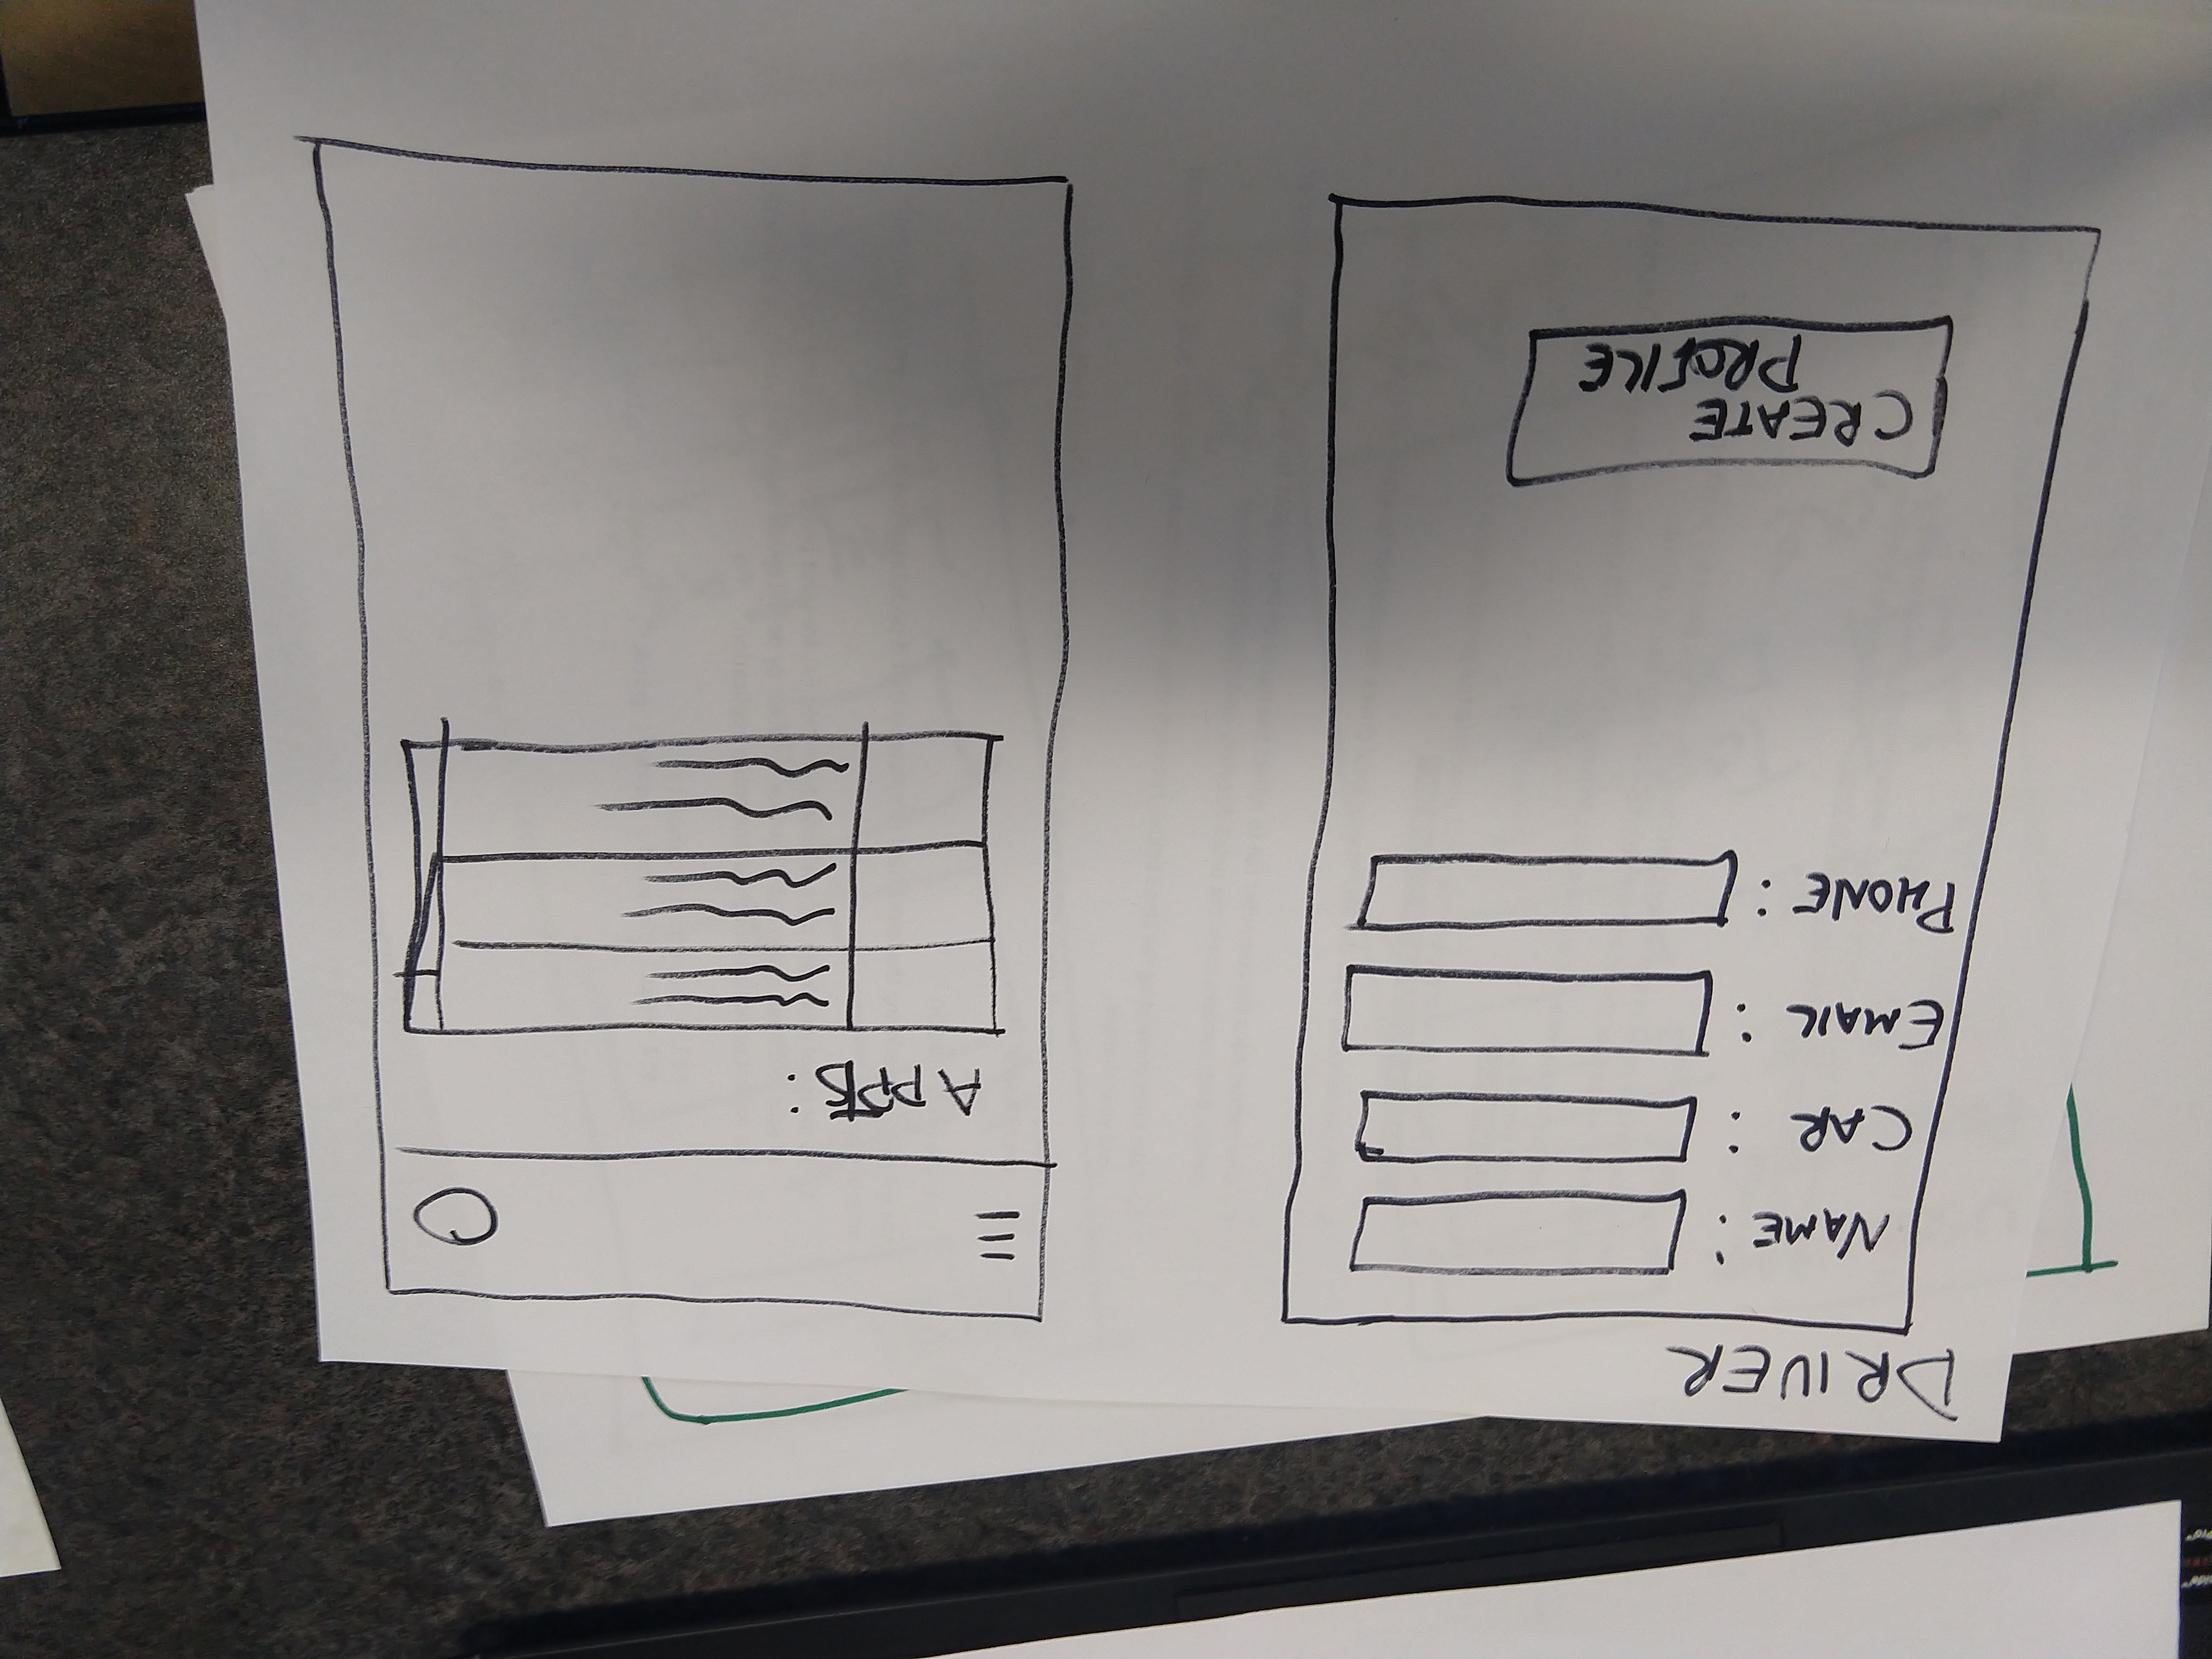 DRIVER
NAME :
CAR :
EMAIL :
PHONE :
CREATE
PROFILE
APPTS :